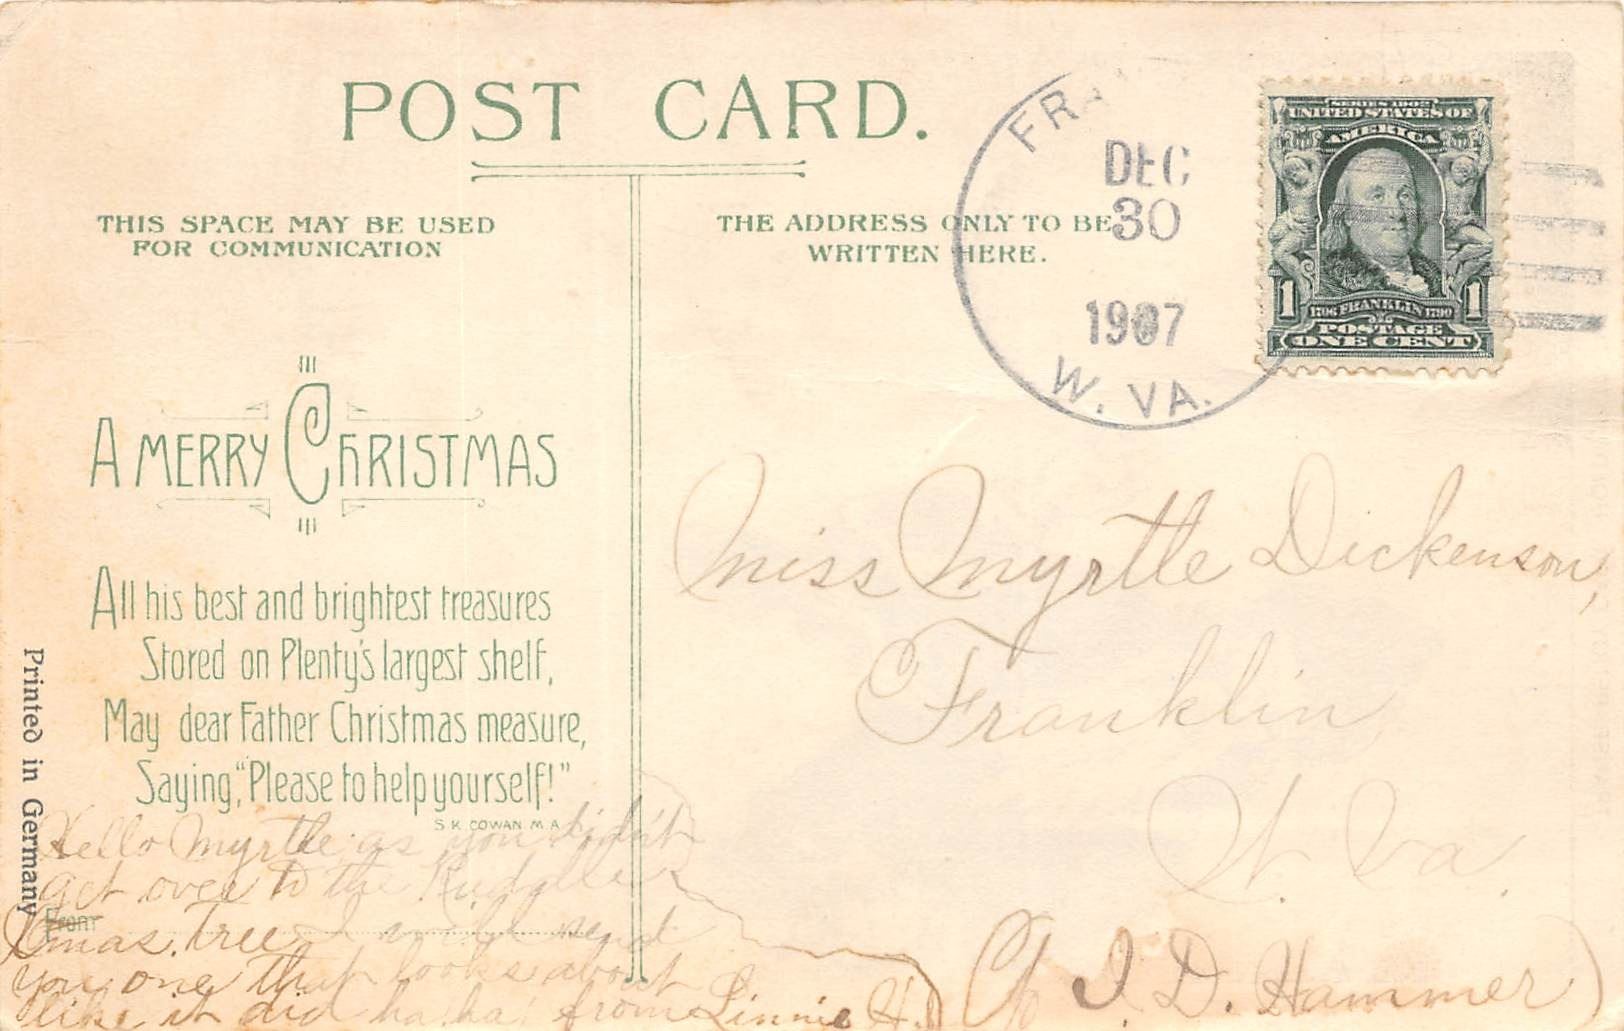 POST CARD.
THIS SPACE MAY BE USED
FOR COMMUNICATION
THE ADDRESS ONLY TO BE
WRITTEN HERE.
DEC
30
1907
W. VA.
SERIES 1902
UNITED STATES OF
AMERICA
1 1706 FRANKLIN 1790 1
POSTAGE
ONE CENT
A MERRY CHRISTMAS
All his best and brightest treasures
Stored on Plenty's largest shelf,
May dear Father Christmas measure,
Saying, "Please to help yourself!"
S. K. COWAN M. A.
Printed in Germany
From
Hello Myrtle as you didn't
get over to the
Xmas tree I will send
you one that looks about
like it did ha ha from Linnie H.
Miss Myrtle Dickenson,
Franklin
W. Va.
(c/o I. D. Hammer)